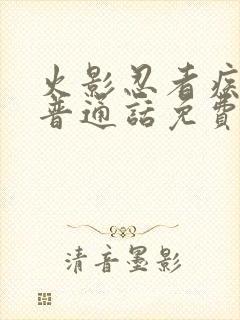 火影忍者疾
普通話免費
清音墨影